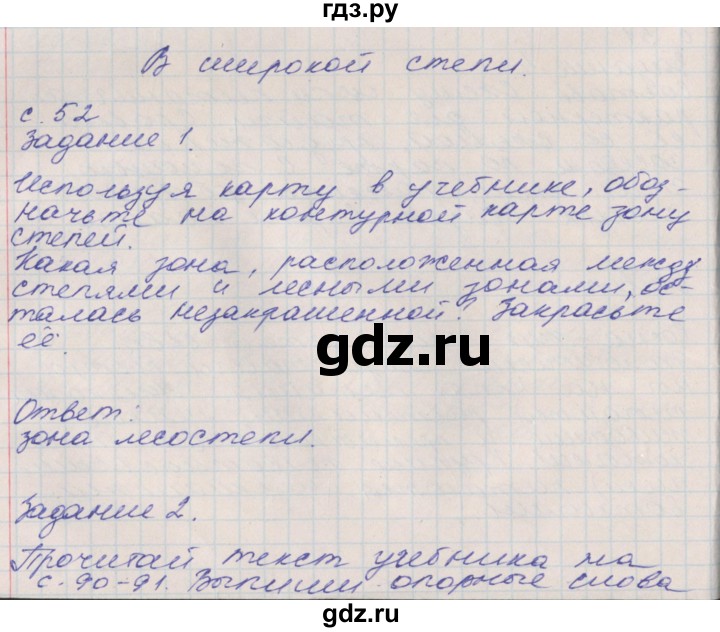 гдз.ру
В широкой степи.
с. 52
Задание 1.
Используя карту в учебнике, обоз-
начьте на контурной карте зону
степей.
Какая зона, расположенная между
степями и лесными зонами, ос-
талась незакрашенной? Закрасьте
её.
gdz.ru
Ответ:
зона лесостепи.
Задание 2.
Прочитай текст учебника на
с. 90-91. Выпиши опорные слова
gdz.ru